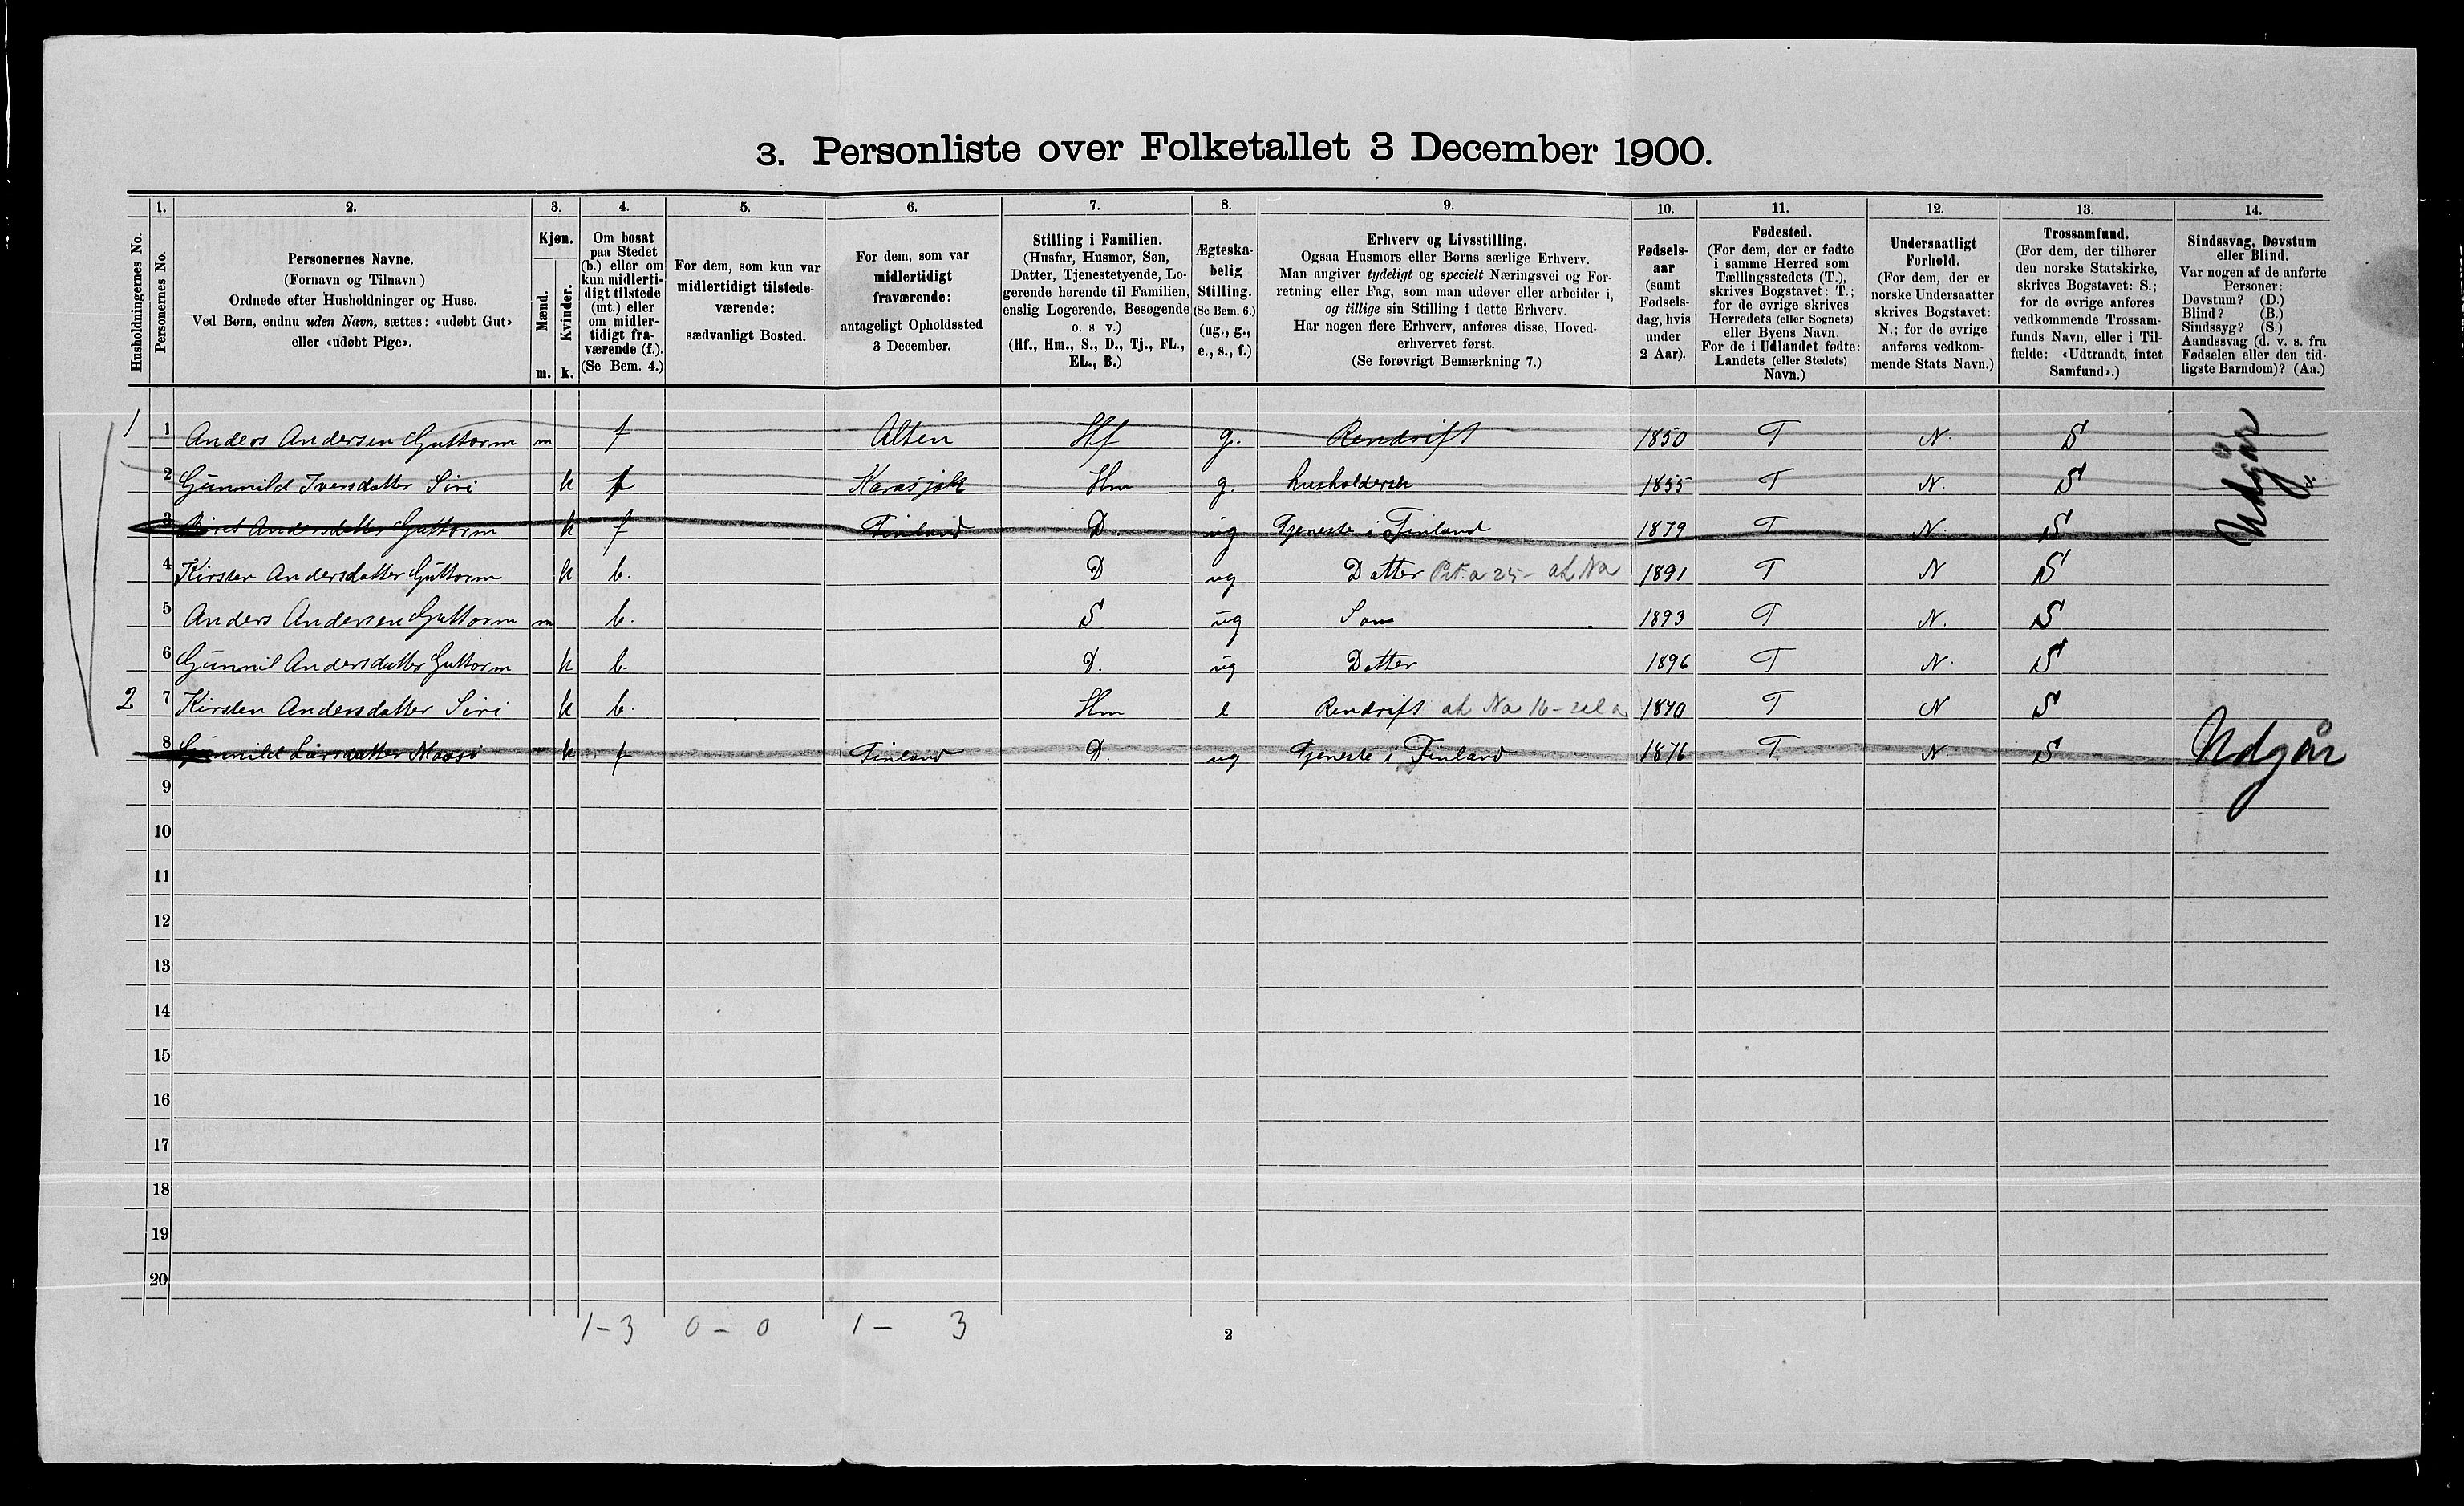 3. Personliste over Folketallet 3 December 1900.
1. 2. 3. 4. 5. 6. 7. 8. 9. 10. 11. 12. 13. 14.
Husholdningernes No.
Personernes No.
Personernes Navne.
(Fornavn og Tilnavn)
Ordnede efter Husholdninger og Huse.
Ved Børn, endnu uden Navn, sættes: «udøbt Gut»
eller «udøbt Pige».
Kjøn.
Mænd.
Kvinder.
m. k.
Om bosat
paa Stedet
(b.) eller om
kun midlerti-
digt tilstede
(mt.) eller
om midler-
tidigt fra-
værende (f.).
(Se Bem. 4.)
For dem, som kun var
midlertidigt tilstede-
værende:
sædvanligt Bosted.
For dem, som var
midlertidigt
fraværende:
antageligt Opholdssted
3 December.
Stilling i Familien.
(Husfar, Husmor, Søn,
Datter, Tjenestetyende, Lo-
gerende hørende til Familien,
enslig Logerende, Besøgende
o. s v.)
(Hf., Hm., S., D., Tj., FL.,
EL., B.)
Ægteska-
belig
Stilling.
(Se Bem. 6.)
(ug., g.,
e., s., f.)
Erhverv og Livsstilling.
Ogsaa Husmors eller Børns særlige Erhverv.
Man angiver tydeligt og specielt Næringsvei og For-
retning eller Fag, som man udøver eller arbeider i,
og tillige sin Stilling i dette Erhverv.
Har nogen flere Erhverv, anføres disse, Hoved-
erhvervet først.
(Se forøvrigt Bemærkning 7.)
Fødsels-
aar
(samt
Fødsels-
dag, hvis
under
2 Aar).
Fødested.
(For dem, der er fødte
i samme Herred som
Tællingsstedets (T.),
skrives Bogstavet: T.;
for de øvrige skrives
Herredets (eller Sognets)
eller Byens Navn.
For de i Udlandet fødte:
Landets (eller Stedets)
Navn.)
Undersaatligt
Forhold.
(For dem, der er
norske Undersaatter
skrives Bogstavet:
N.; for de øvrige
anføres vedkom-
mende Stats Navn.)
Trossamfund.
(For dem, der tilhører
den norske Statskirke,
skrives Bogstavet: S.;
for de øvrige anføres
vedkommende Trossam-
funds Navn, eller i Til-
fælde: «Udtraadt, intet
Samfund».)
Sindssvag, Døvstum
eller Blind.
Var nogen af de anførte
Personer:
Døvstum? (D.)
Blind? (B.)
Sindssyg? (S.)
Aandssvag (d. v. s. fra
Fødselen eller den tid-
ligste Barndom)? (Aa.)
1 1 Anders Andersen Guttorm m f Alten Hf g. Rendrift 1850 T N. S
2 Gunnild Iversdatter Siri k f Karasjok Hm g. husholdersk 1855 T N. S
3 Andersdatter Guttorm k f Finland D. ug Tjeneste i Finland 1879 T N. S Udgår
4 Kirsten Andersdatter Guttorm k b. D ug Datter 1891 T N S
5 Anders Andersen Guttorm m b. S ug Søn 1893 T N. S
6 Gunnil Andersdatter Guttorm k b. D. ug Datter 1896 T N. S
2 7 Kirsten Andersdatter Siri k b. Hm e Rendrift 1840 T N S
8 Gunnild Larsdatter k f Finland D. ug Tjeneste i Finland 1876 T N. S Udgår
9
10
11
12
13
14
15
16
17
18
19
20
1-3 0-0 1- 3
2